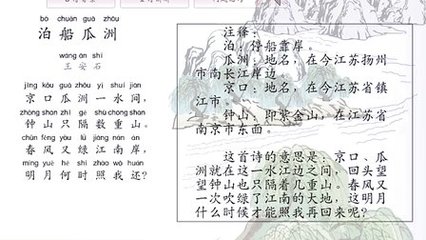 bó chuán guā zhōu
泊船瓜洲
wáng ān shí
王安石
jīng kǒu guā zhōu yì shuǐ jiān
京口瓜洲一水间，
zhōng shān zhǐ gé shù chóng shān
钟山只隔数重山。
chūn fēng yòu lǜ jiāng nán àn
春风又绿江南岸，
míng yuè hé shí zhào wǒ huán
明月何时照我还？
注释：
泊：停船靠岸。
瓜洲：地名，在今江苏扬州
市南长江岸边。
京口：地名，在今江苏省镇
江市。
钟山：即紫金山，在江苏省
南京市东面。
这首诗的意思是：京口、瓜
洲就在这一水江边之间，回头望
望钟山也只隔着几重山。春风又
一次吹绿了江南的大地，这明月
什么时候才能照我再回来呢？